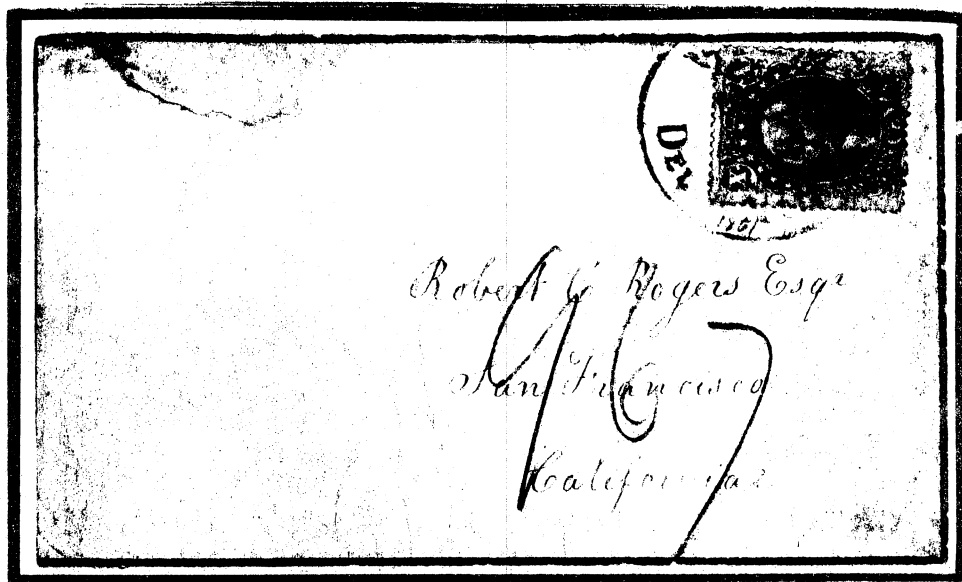 DEC
1861
Robert C Rogers Esqr
San Francisco
California
967